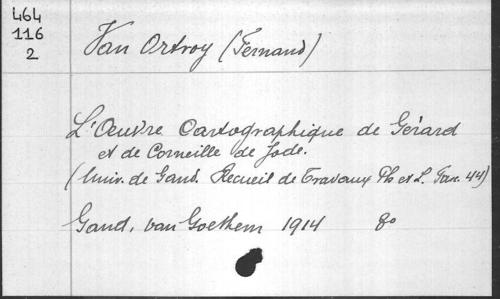 464
116
2
Van Ortroy (Fernand)
L'Œuvre Cartographique de Gérard
et de Corneille de Jode.
(Univ. de Gand. Recueil de Travaux Ph et L. Fac. 44)
Gand, van Goethem 1914 8o